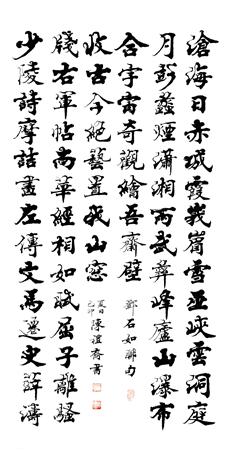 滄海日赤城霞峩嵋雪巫峽雲洞庭
月彭蠡煙瀟湘雨武彝峰廬山瀑布
合宇宙奇觀繪吾齋壁
鄧石如聯句
少陵詩摩詰畫左傳文馬遷史薛濤
牋右軍帖南華經相如賦屈子離騷
收古今絕藝置我山窓
夏日
己卯
陳齋書